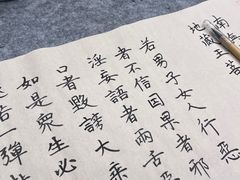 南無
地藏王菩
若男子女人行惡
者不信因果者邪
淫妄語者兩舌惡
口者毀謗大乘
如是眾生必
一彈